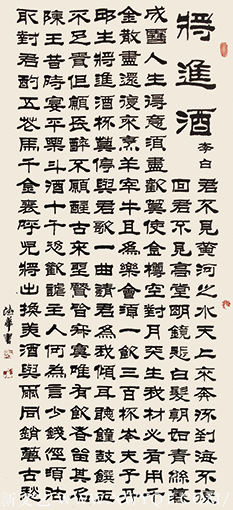 將進酒 李白
君不見黃河之水天上來奔流到海不復
回君不見高堂明鏡悲白髮朝如青絲暮
成雪人生得意須盡歡莫使金樽空對月天生我材必有用千
金散盡還復來烹羊宰牛且為樂會須一飲三百杯岑夫子丹
邱生將進酒杯莫停與君歌一曲請君為我傾耳聽鐘鼓饌玉
不足貴但願長醉不願醒古來聖賢皆寂寞唯有飲者留其名
陳王昔時宴平樂斗酒十千恣歡謔主人何為言少錢徑須沽
取對君酌五花馬千金裘呼兒將出換美酒與爾同銷萬古愁